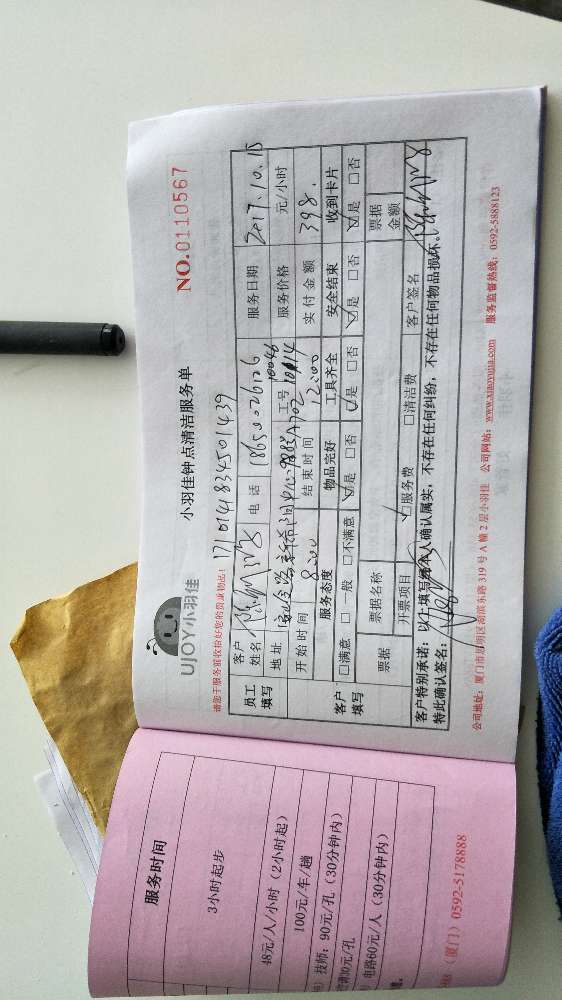 UJOY小羽佳
小羽佳钟点清洁服务单
NO.0110567
请您于服务前收拾好您的贵重物品!
17101483450 1439
员工填写
客户姓名
电话 18650026126
服务日期 2017.10.15
地址
工号 10046
10014
服务价格 元/小时
开始时间 8:00
结束时间 12:00
实付金额 398.
客户填写
服务态度 物品完好 工具齐全 安全结束 收到卡片
□满意 □一般 □不满意 □是 □否 □是 □否 □是 □否 □是 □否
票据 票据名称 票据金额
开票项目 □服务费 □清洁费 客户签名
客户特别承诺:以上填写经本人确认属实,不存在任何纠纷,不存在任何物品损坏。
特此确认签名:
公司地址:厦门市思明区湖滨东路 319 号 A 幢 2 层小羽佳 公司网站:www.xiaoyujia.com 服务监督热线:0592-5888123
服务时间
3小时起步
48元/人/小时(2小时起)
100元/车/趟
技师:90元/孔(30分钟内)
10元/孔
电路60元/人(30分钟内)
(厦门)0592-5178888